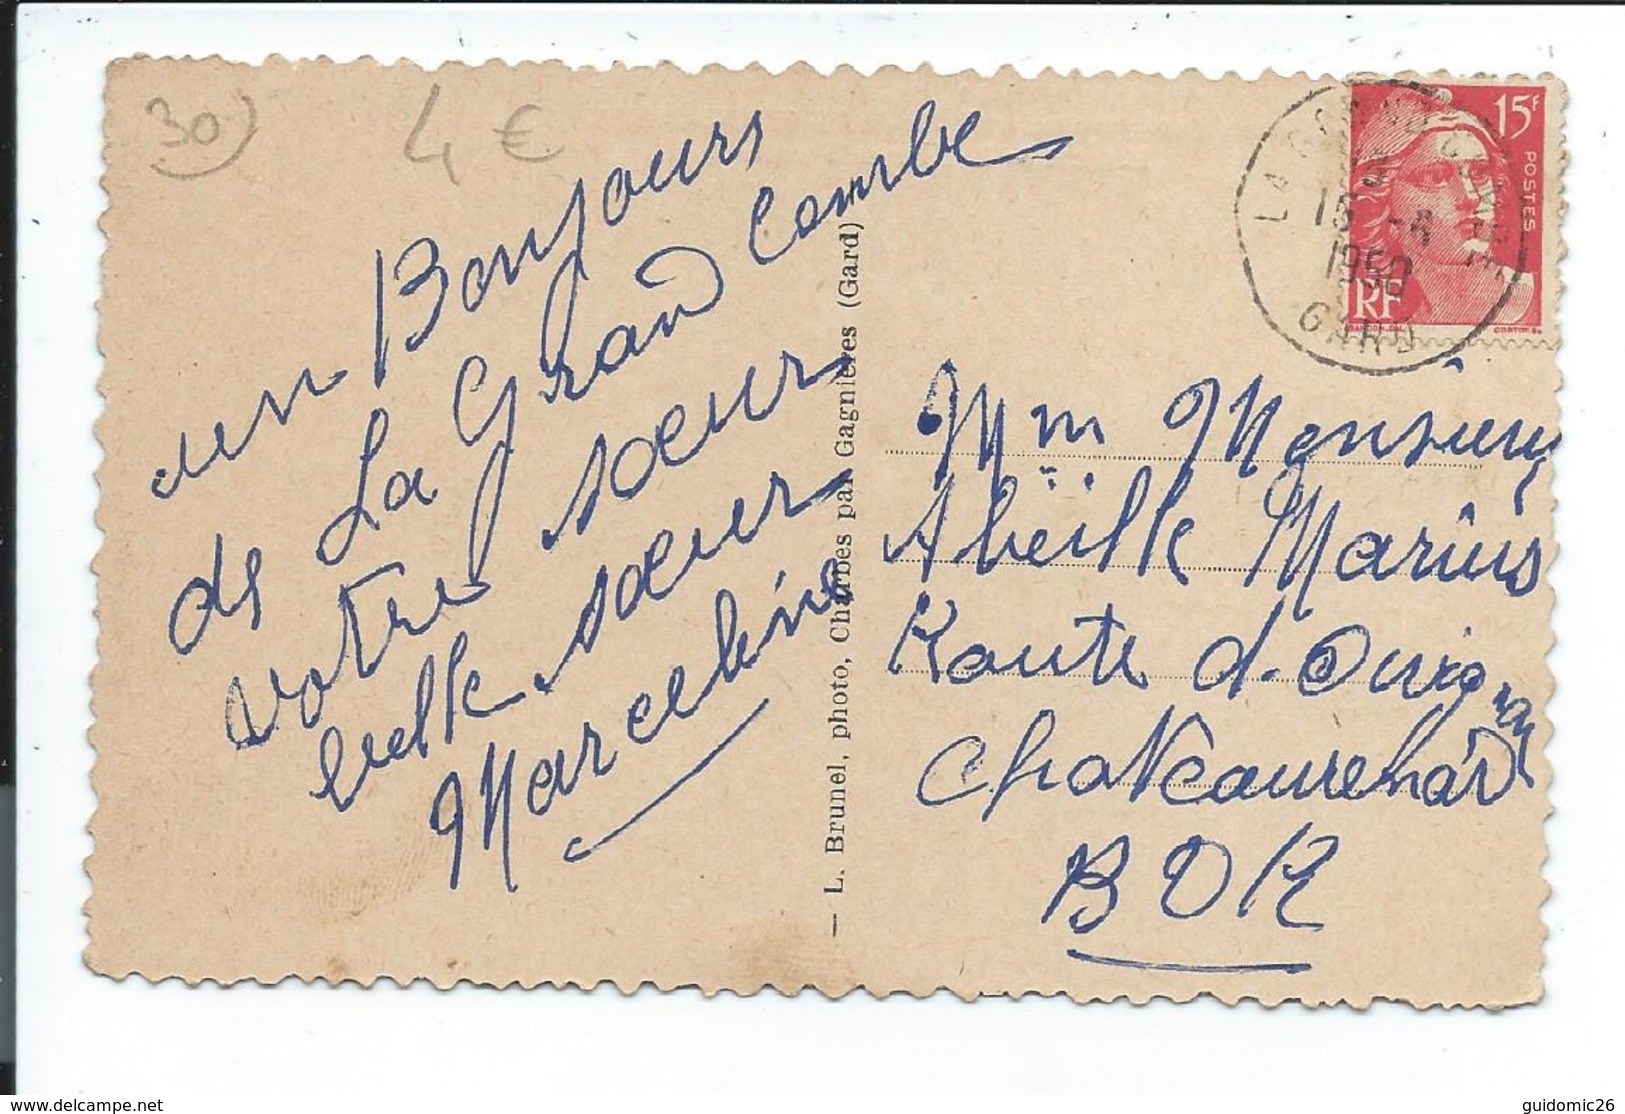 30)
4 €
un Bonjours
de La Grand Combe
votre soeur
belle soeur
Marceline
— L. Brunel, photo, Charbes par Gagnières (Gard)
LA GRAND COMBE
15 -
1950
GARD
15F
POSTES
RF
GANDON.DEL
CORTOT Sc
Mm Monsieur
Abeille Marius
Route d. Avignon
Chateaurenard
B D R
www.delcampe.net
guidomic26